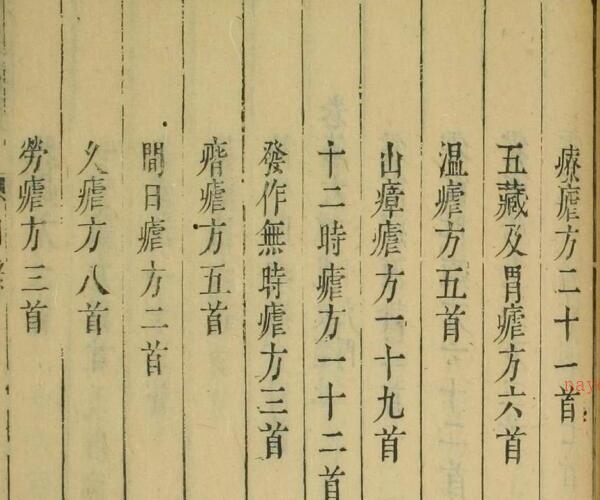 療瘧方二十一首
五藏及胃瘧方六首
温瘧方五首
山瘴瘧方一十九首
十二時瘧方一十二首
發作無時瘧方三首
痎瘧方五首
間日瘧方二首
久瘧方八首
勞瘧方三首